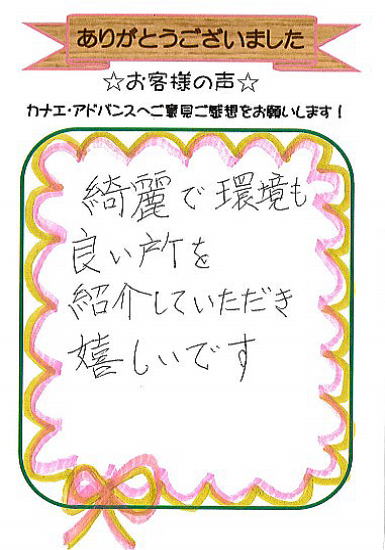 ありがとうございました
☆お客様の声☆
カナエ・アドバンスへご意見ご感想をお願いします！
綺麗で環境も
良い所を
紹介していただき
嬉しいです